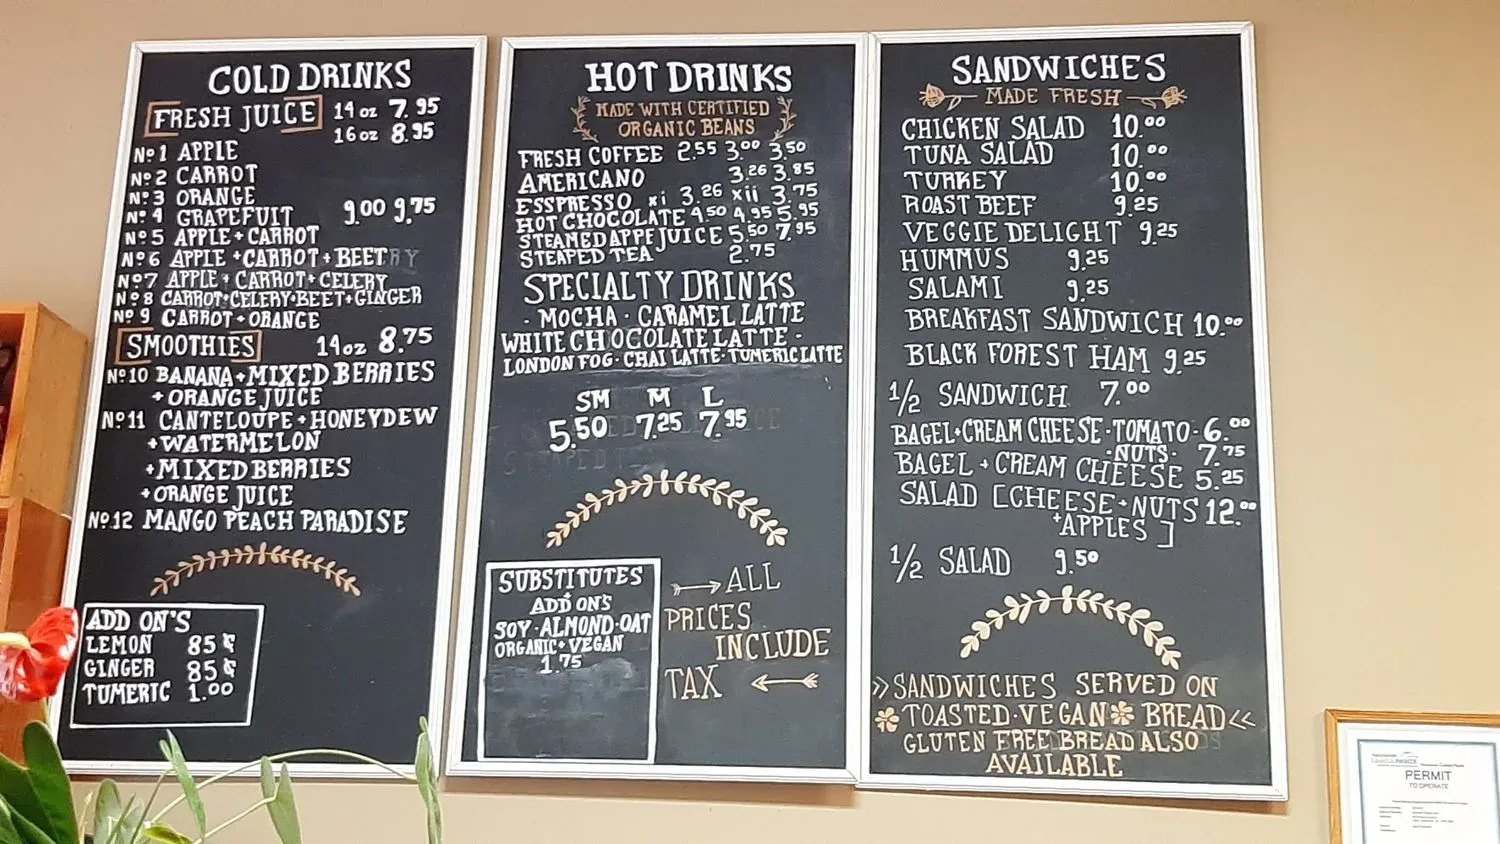 COLD DRINKS
FRESH JUICE 14 oz 7.95
16 oz 8.95
No 1 APPLE
No 2 CARROT
No 3 ORANGE
No 4 GRAPEFUIT 9.00 9.75
No 5 APPLE + CARROT
No 6 APPLE + CARROT + BEET
No 7 APPLE + CARROT + CELERY
No 8 CARROT + CELERY + BEET + GINGER
No 9 CARROT + ORANGE
SMOOTHIES 14oz 8.75
No 10 BANANA + MIXED BERRIES
+ ORANGE JUICE
No 11 CANTELOUPE + HONEYDEW
+ WATERMELON
+ MIXED BERRIES
+ ORANGE JUICE
No 12 MANGO PEACH PARADISE
ADD ON'S
LEMON 85¢
GINGER 85¢
TUMERIC 1.00
HOT DRINKS
MADE WITH CERTIFIED
ORGANIC BEANS
FRESH COFFEE 2.55 3.00 3.50
AMERICANO 3.26 3.85
ESSPRESSO xi 3.26 xii 3.75
HOT CHOCOLATE 4.50 4.95 5.95
STEAMED APPE JUICE 5.50 7.95
STEAPED TEA 2.75
SPECIALTY DRINKS
· MOCHA · CARAMEL LATTE
WHITE CHOCOLATE LATTE ·
LONDON FOG · CHAI LATTE · TUMERIC LATTE
SM M L
5.50 7.25 7.95
SUBSTITUTES
+
ADD ON'S
SOY · ALMOND · OAT
ORGANIC + VEGAN
1.75
ALL
PRICES
INCLUDE
TAX
SANDWICHES
MADE FRESH
CHICKEN SALAD 10.00
TUNA SALAD 10.00
TURKEY 10.00
ROAST BEEF 9.25
VEGGIE DELIGHT 9.25
HUMMUS 9.25
SALAMI 9.25
BREAKFAST SANDWICH 10.00
BLACK FOREST HAM 9.25
1/2 SANDWICH 7.00
BAGEL + CREAM CHEESE · TOMATO - 6.00
· NUTS · 7.75
BAGEL + CREAM CHEESE 5.25
SALAD [CHEESE + NUTS 12.00
+ APPLES]
1/2 SALAD 9.50
>> SANDWICHES SERVED ON
TOASTED · VEGAN BREAD <<
GLUTEN FREE BREAD ALSO
AVAILABLE
PERMIT
TO OPERATE